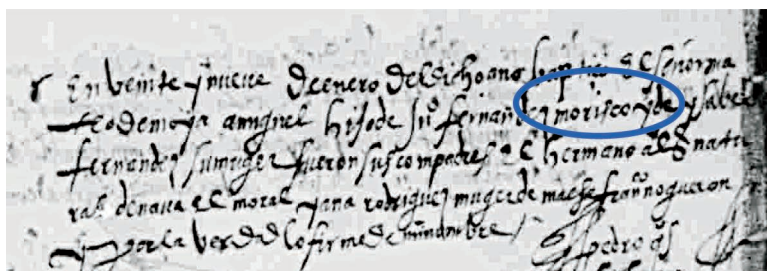 En veinte y nueve de enero del dicho año baptizo el señor ma
teo de moya a miguel hijo de Juº fernandez morisco y de ysabel
fernandez su muger fueron sus compadres el hermano
ral de nava el moral y ana rodriguez muger de maese franº nogueron
y por la verdad lo firme de mi nombre
pedro